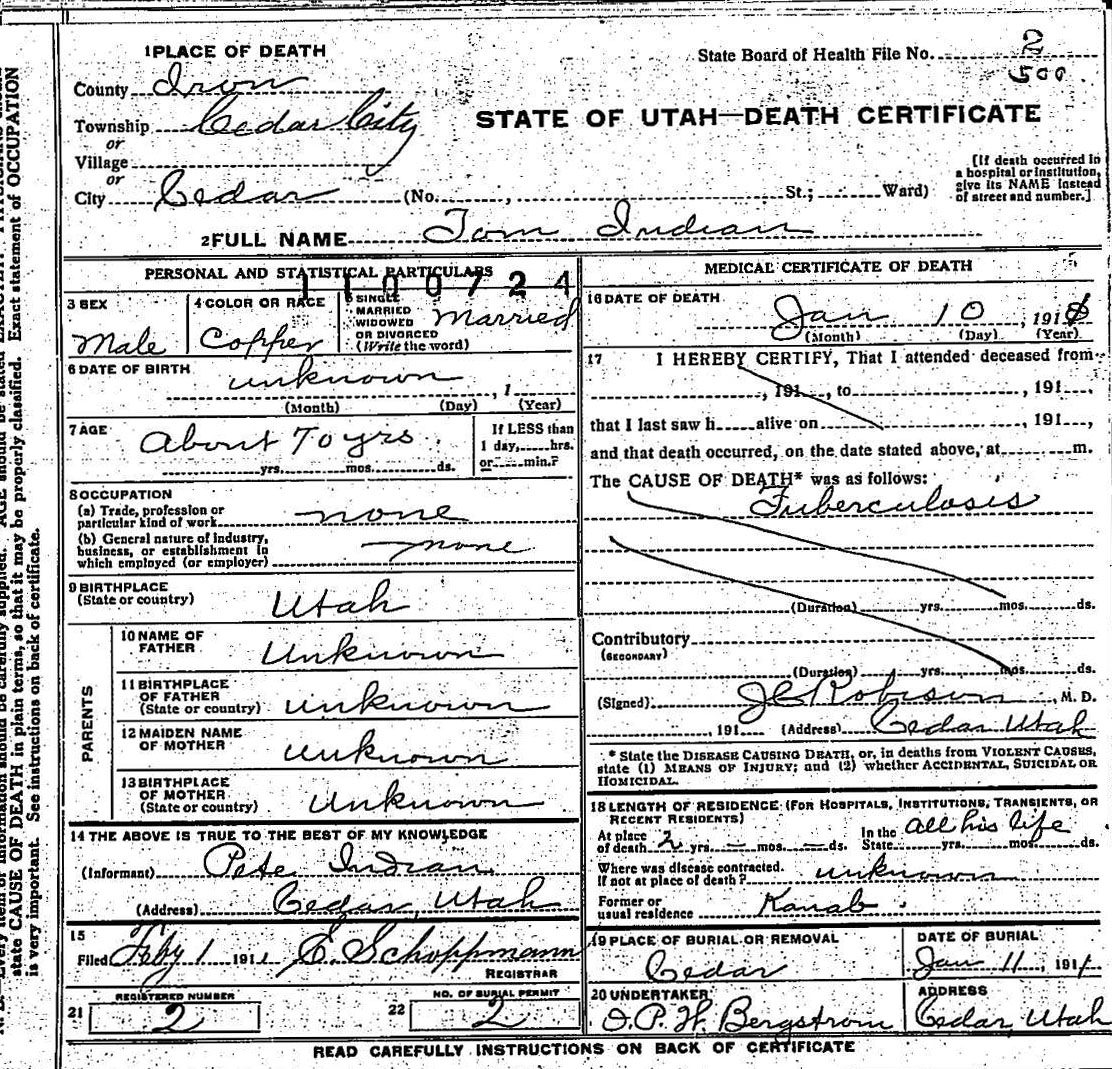 1 PLACE OF DEATH
State Board of Health File No. 2
500
County Iron
Township Cedar City
STATE OF UTAH—DEATH CERTIFICATE
or
Village
or
City Cedar (No. , St.; Ward)
[If death occurred in
a hospital or institution,
give its NAME instead
of street and number.]
2 FULL NAME Tom Indian
PERSONAL AND STATISTICAL PARTICULARS
1100724
3 SEX
Male
4 COLOR OR RACE
Copper
5 SINGLE
MARRIED
WIDOWED
OR DIVORCED
(Write the word)
Married
6 DATE OF BIRTH
unknown
, 1
(Month) (Day) (Year)
7 AGE
About 70 yrs.
yrs. mos. ds.
If LESS than
1 day, hrs.
or min.?
8 OCCUPATION
(a) Trade, profession or
particular kind of work none
(b) General nature of industry,
business, or establishment in
which employed (or employer) none
9 BIRTHPLACE
(State or country)
Utah
PARENTS
10 NAME OF
FATHER
Unknown
11 BIRTHPLACE
OF FATHER
(State or country)
unknown
12 MAIDEN NAME
OF MOTHER
unknown
13 BIRTHPLACE
OF MOTHER
(State or country)
Unknown
14 THE ABOVE IS TRUE TO THE BEST OF MY KNOWLEDGE
(Informant) Pete Indian
(Address) Cedar, Utah
15
Filed Feby 1 1911 E. Schoppmann
REGISTRAR
21 REGISTERED NUMBER
2
22 NO. OF BURIAL PERMIT
2
MEDICAL CERTIFICATE OF DEATH
16 DATE OF DEATH
Jan 10 , 191
(Month) (Day) (Year)
17 I HEREBY CERTIFY, That I attended deceased from
, 191 , to , 191 ,
that I last saw h alive on , 191 ,
and that death occurred, on the date stated above, at m.
The CAUSE OF DEATH* was as follows:
Tuberculosis
(Duration) yrs. mos. ds.
Contributory
(SECONDARY)
(Duration) yrs. mos. ds.
(Signed) J C Robison , M. D.
, 191 (Address) Cedar Utah
* State the DISEASE CAUSING DEATH, or, in deaths from VIOLENT CAUSES,
state (1) MEANS OF INJURY; and (2) whether ACCIDENTAL, SUICIDAL OR
HOMICIDAL.
18 LENGTH OF RESIDENCE (FOR HOSPITALS, INSTITUTIONS, TRANSIENTS, OR
RECENT RESIDENTS)
At place In the all his life
of death 2 yrs. – mos. – ds. State yrs. mos. ds.
Where was disease contracted.
If not at place of death? unknown
Former or
usual residence Kanab
19 PLACE OF BURIAL OR REMOVAL
Cedar
DATE OF BURIAL
Jan 11, 1911
20 UNDERTAKER
O. P. H. Bergstrom
ADDRESS
Cedar, Utah
READ CAREFULLY INSTRUCTIONS ON BACK OF CERTIFICATE
state CAUSE OF DEATH in plain terms, so that it may be properly classified. Exact statement of OCCUPATION
is very important. See instructions on back of certificate.